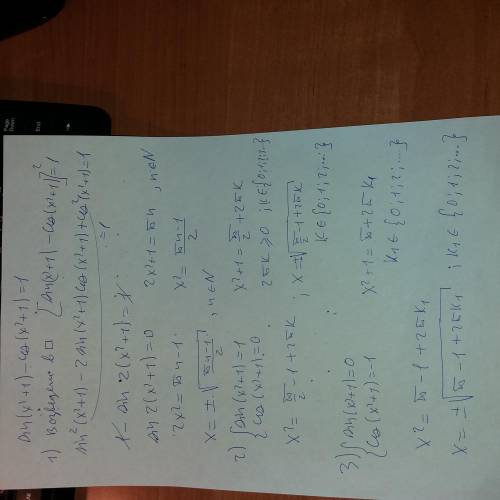 sin(x²+1) - cos(x²+1) = 1
1) Возведём в □ [sin(x²+1) - cos(x²+1)]² = 1
sin²(x²+1) - 2 sin(x²+1) cos(x²+1) + cos²(x²+1) = 1
=1
1 - sin 2(x²+1) = 1
sin 2(x²+1) = 0 2x²+1 = πn , n∈N
2x² = πn-1 x² = (πn-1)/2
x = ±√((πn-1)/2) , n∈N
2) { sin(x²+1) = 1 x²+1 = π/2 + 2πk
{ cos(x²+1) = 0 2πk ≥ 0 ; k∈{0;1;2;...}
x² = π/2 - 1 + 2πk ; x = ±√(π/2 - 1 + 2πk)
k∈{0;1;2;...}
3) { sin(x²+1) = 0 x²+1 = π + 2πk₁
{ cos(x²+1) = -1 k₁∈{0;1;2;...}
x² = π - 1 + 2πk₁
x = ±√(π - 1 + 2πk₁) ; k₁∈{0;1;2;...}